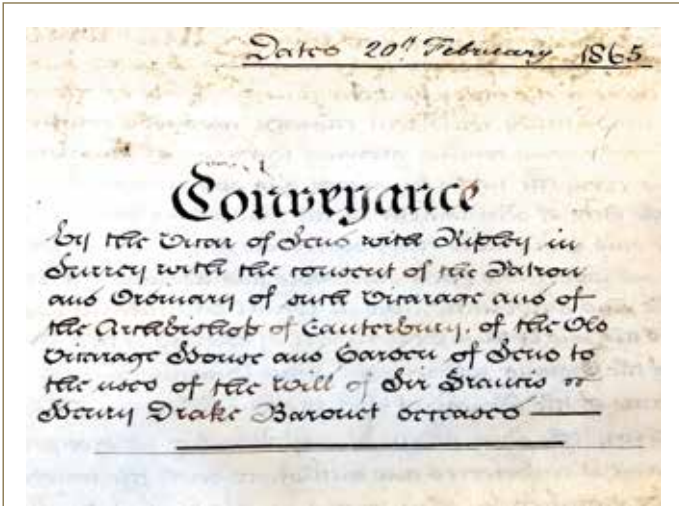 Dated 20th February 1865
Conveyance
by the Vicar of Send with Ripley in
Surrey with the consent of the Patron
and Ordinary of such Vicarage and of
the Archbishop of Canterbury, of the Old
Vicarage House and Garden of Send to
the uses of the Will of Sir Francis
Henry Drake Baronet deceased